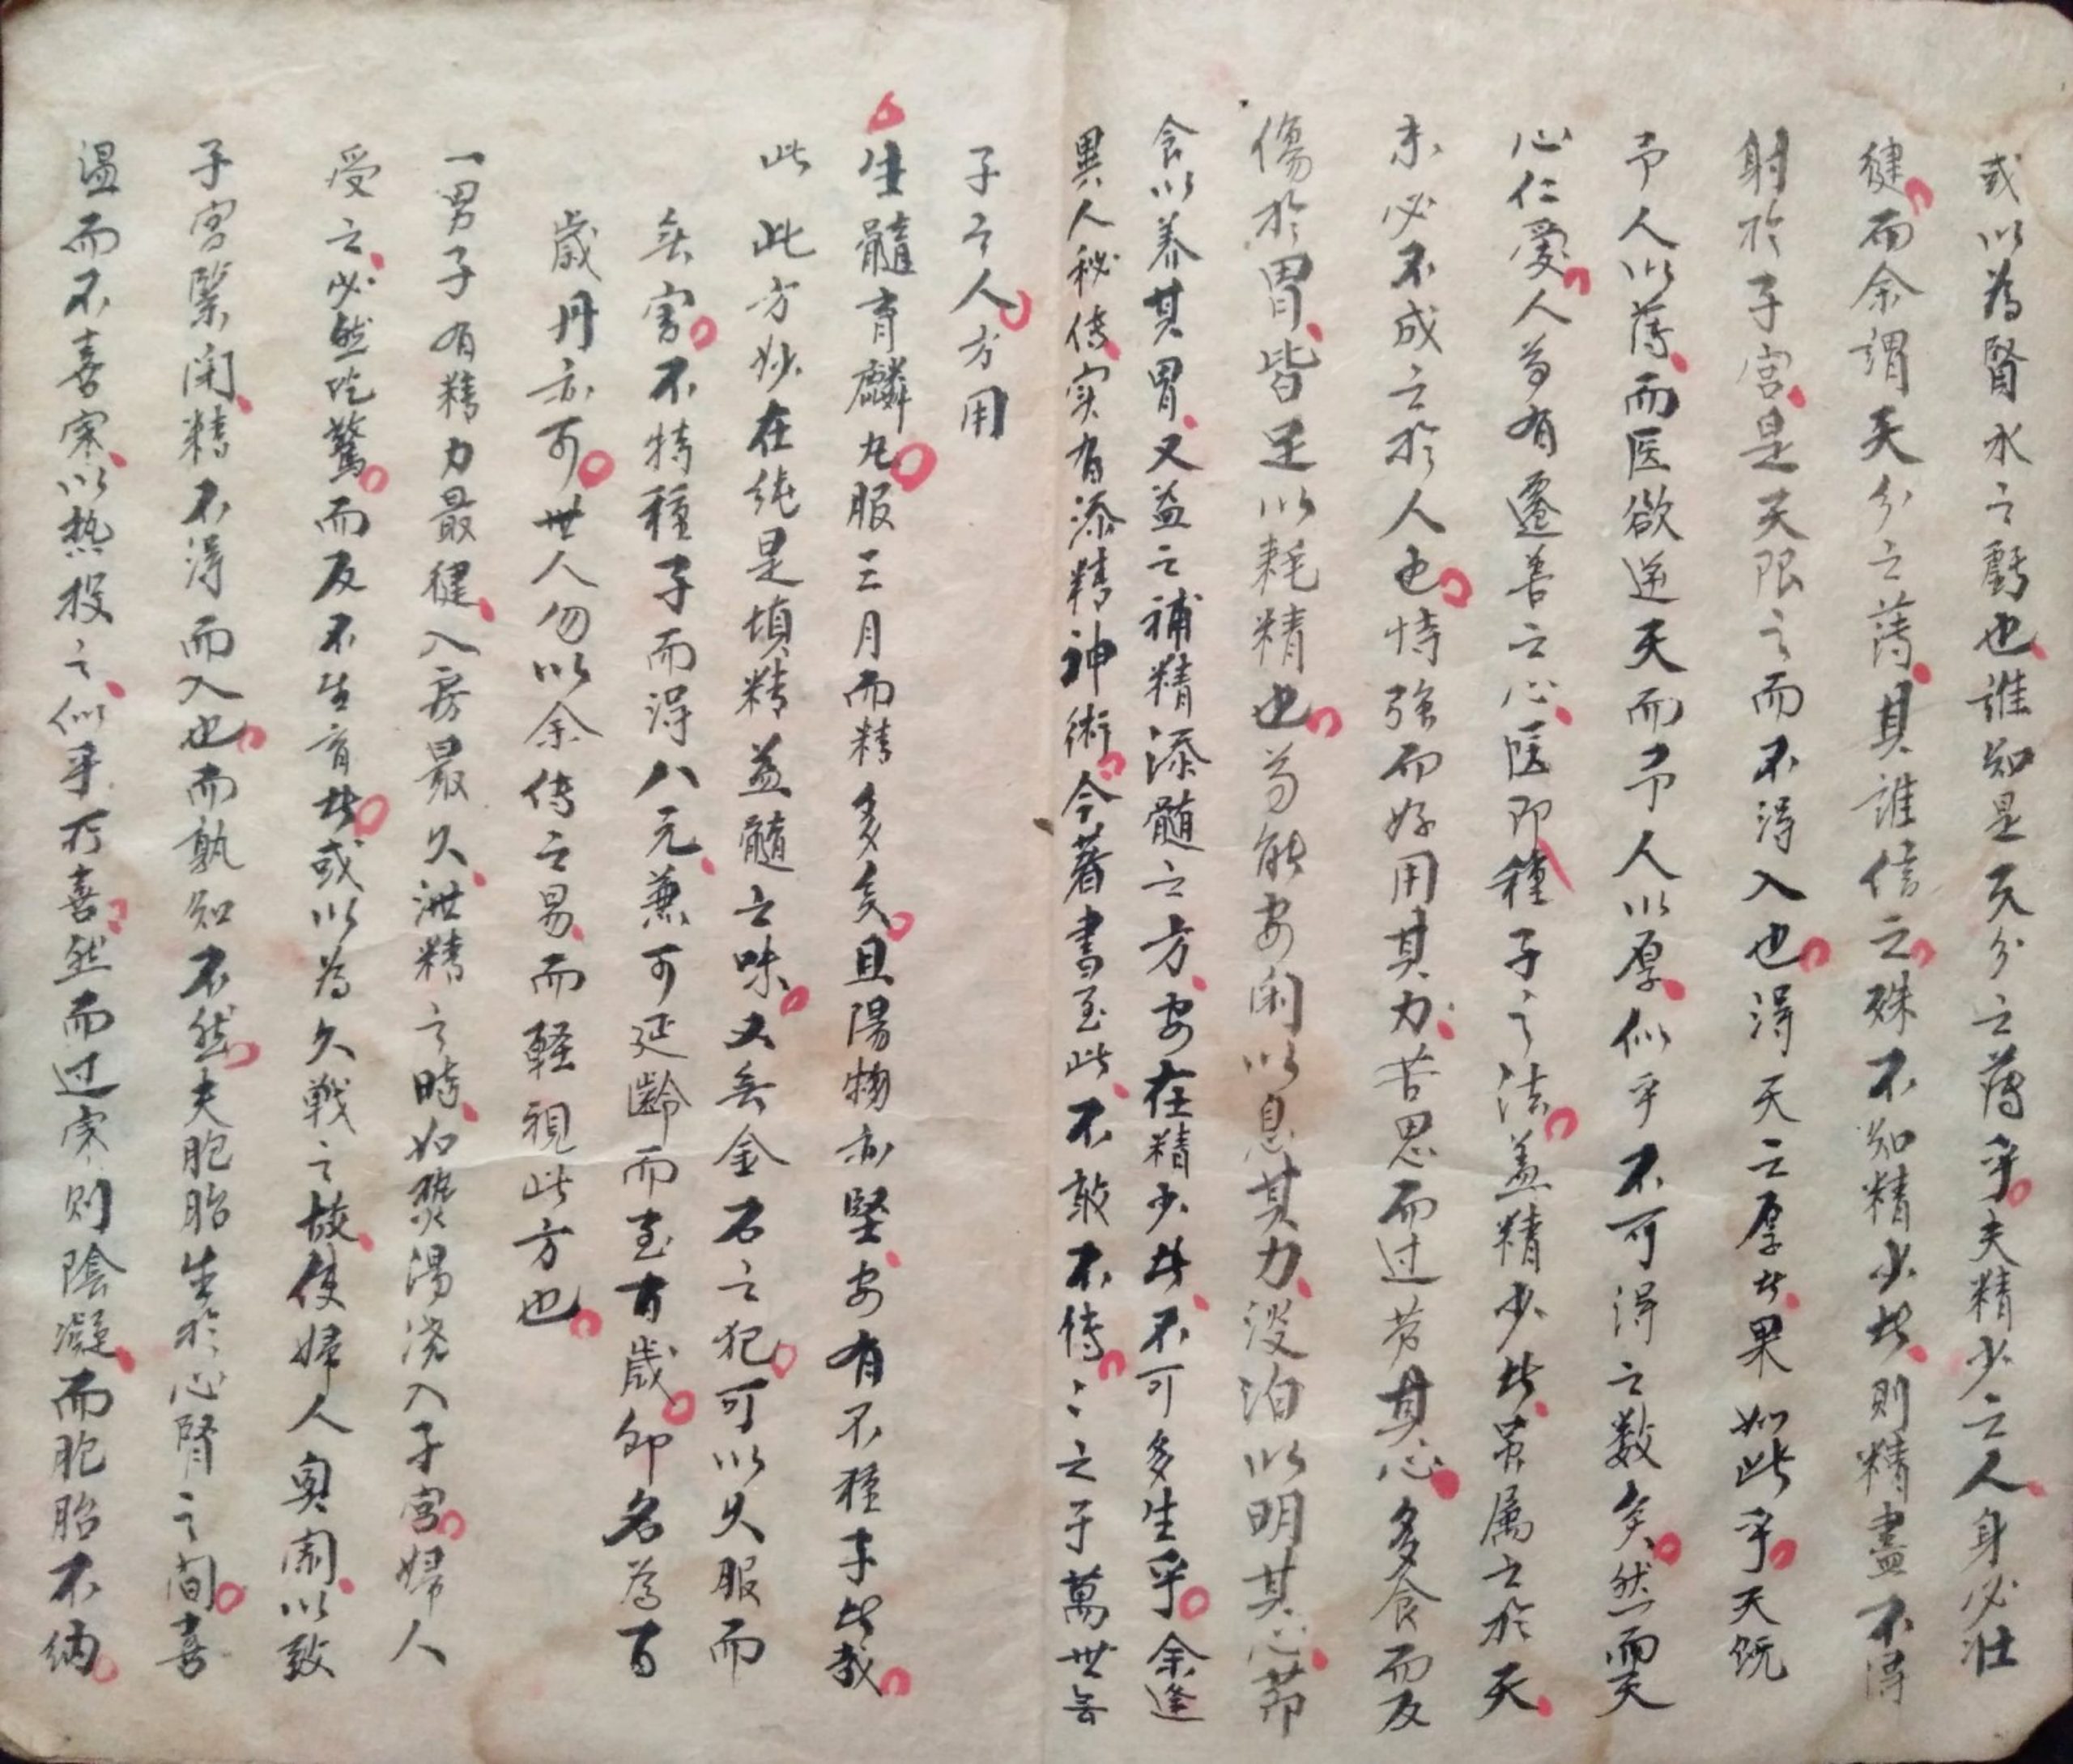 或以為腎水之虧也誰知是天分之薄乎夫精少之人身必壮
健而余謂天分之薄其誰信之殊不知精少者則精盡不得
射於子宮是天限之而不得入也得天之厚者果如此乎天既
予人以薄而医欲逆天而予人以厚似乎不可得之数矣然而天
心仁愛人苟有遷善之心医即種子之法盖精少者虽属之於天
未必不成之於人也恃強而好用其力苦思而过劳其心多食而反
傷於胃皆足以耗精也苟能安闲以息其力淡泊以明其心节
食以养其胃又益之補精添髓之方安在精少者不可多生乎余逢
異人秘傳实有添精神術今著書至此不敢不傳〻之于萬世無
子之人方用
生髓育麟丸服三月而精多矣且陽物亦堅安有不種子者哉
此此方妙在纯是填精益髓之味又无金石之犯可以久服而
无害不特種子而得八元兼可延齡而至百歲即名為百
歲丹亦可世人勿以余传之易而輕視此方也
一男子有精力最健入房最久泄精之時如熱湯浇入子宮婦人
受之必然吃驚而反不生育者或以為久戰之故使婦人興闌以致
子宮緊闭精不得而入也而孰知不然夫胞胎生於心腎之間喜
温而不喜寒以热投之似乎可喜然而过寒則陰凝而胞胎不纳